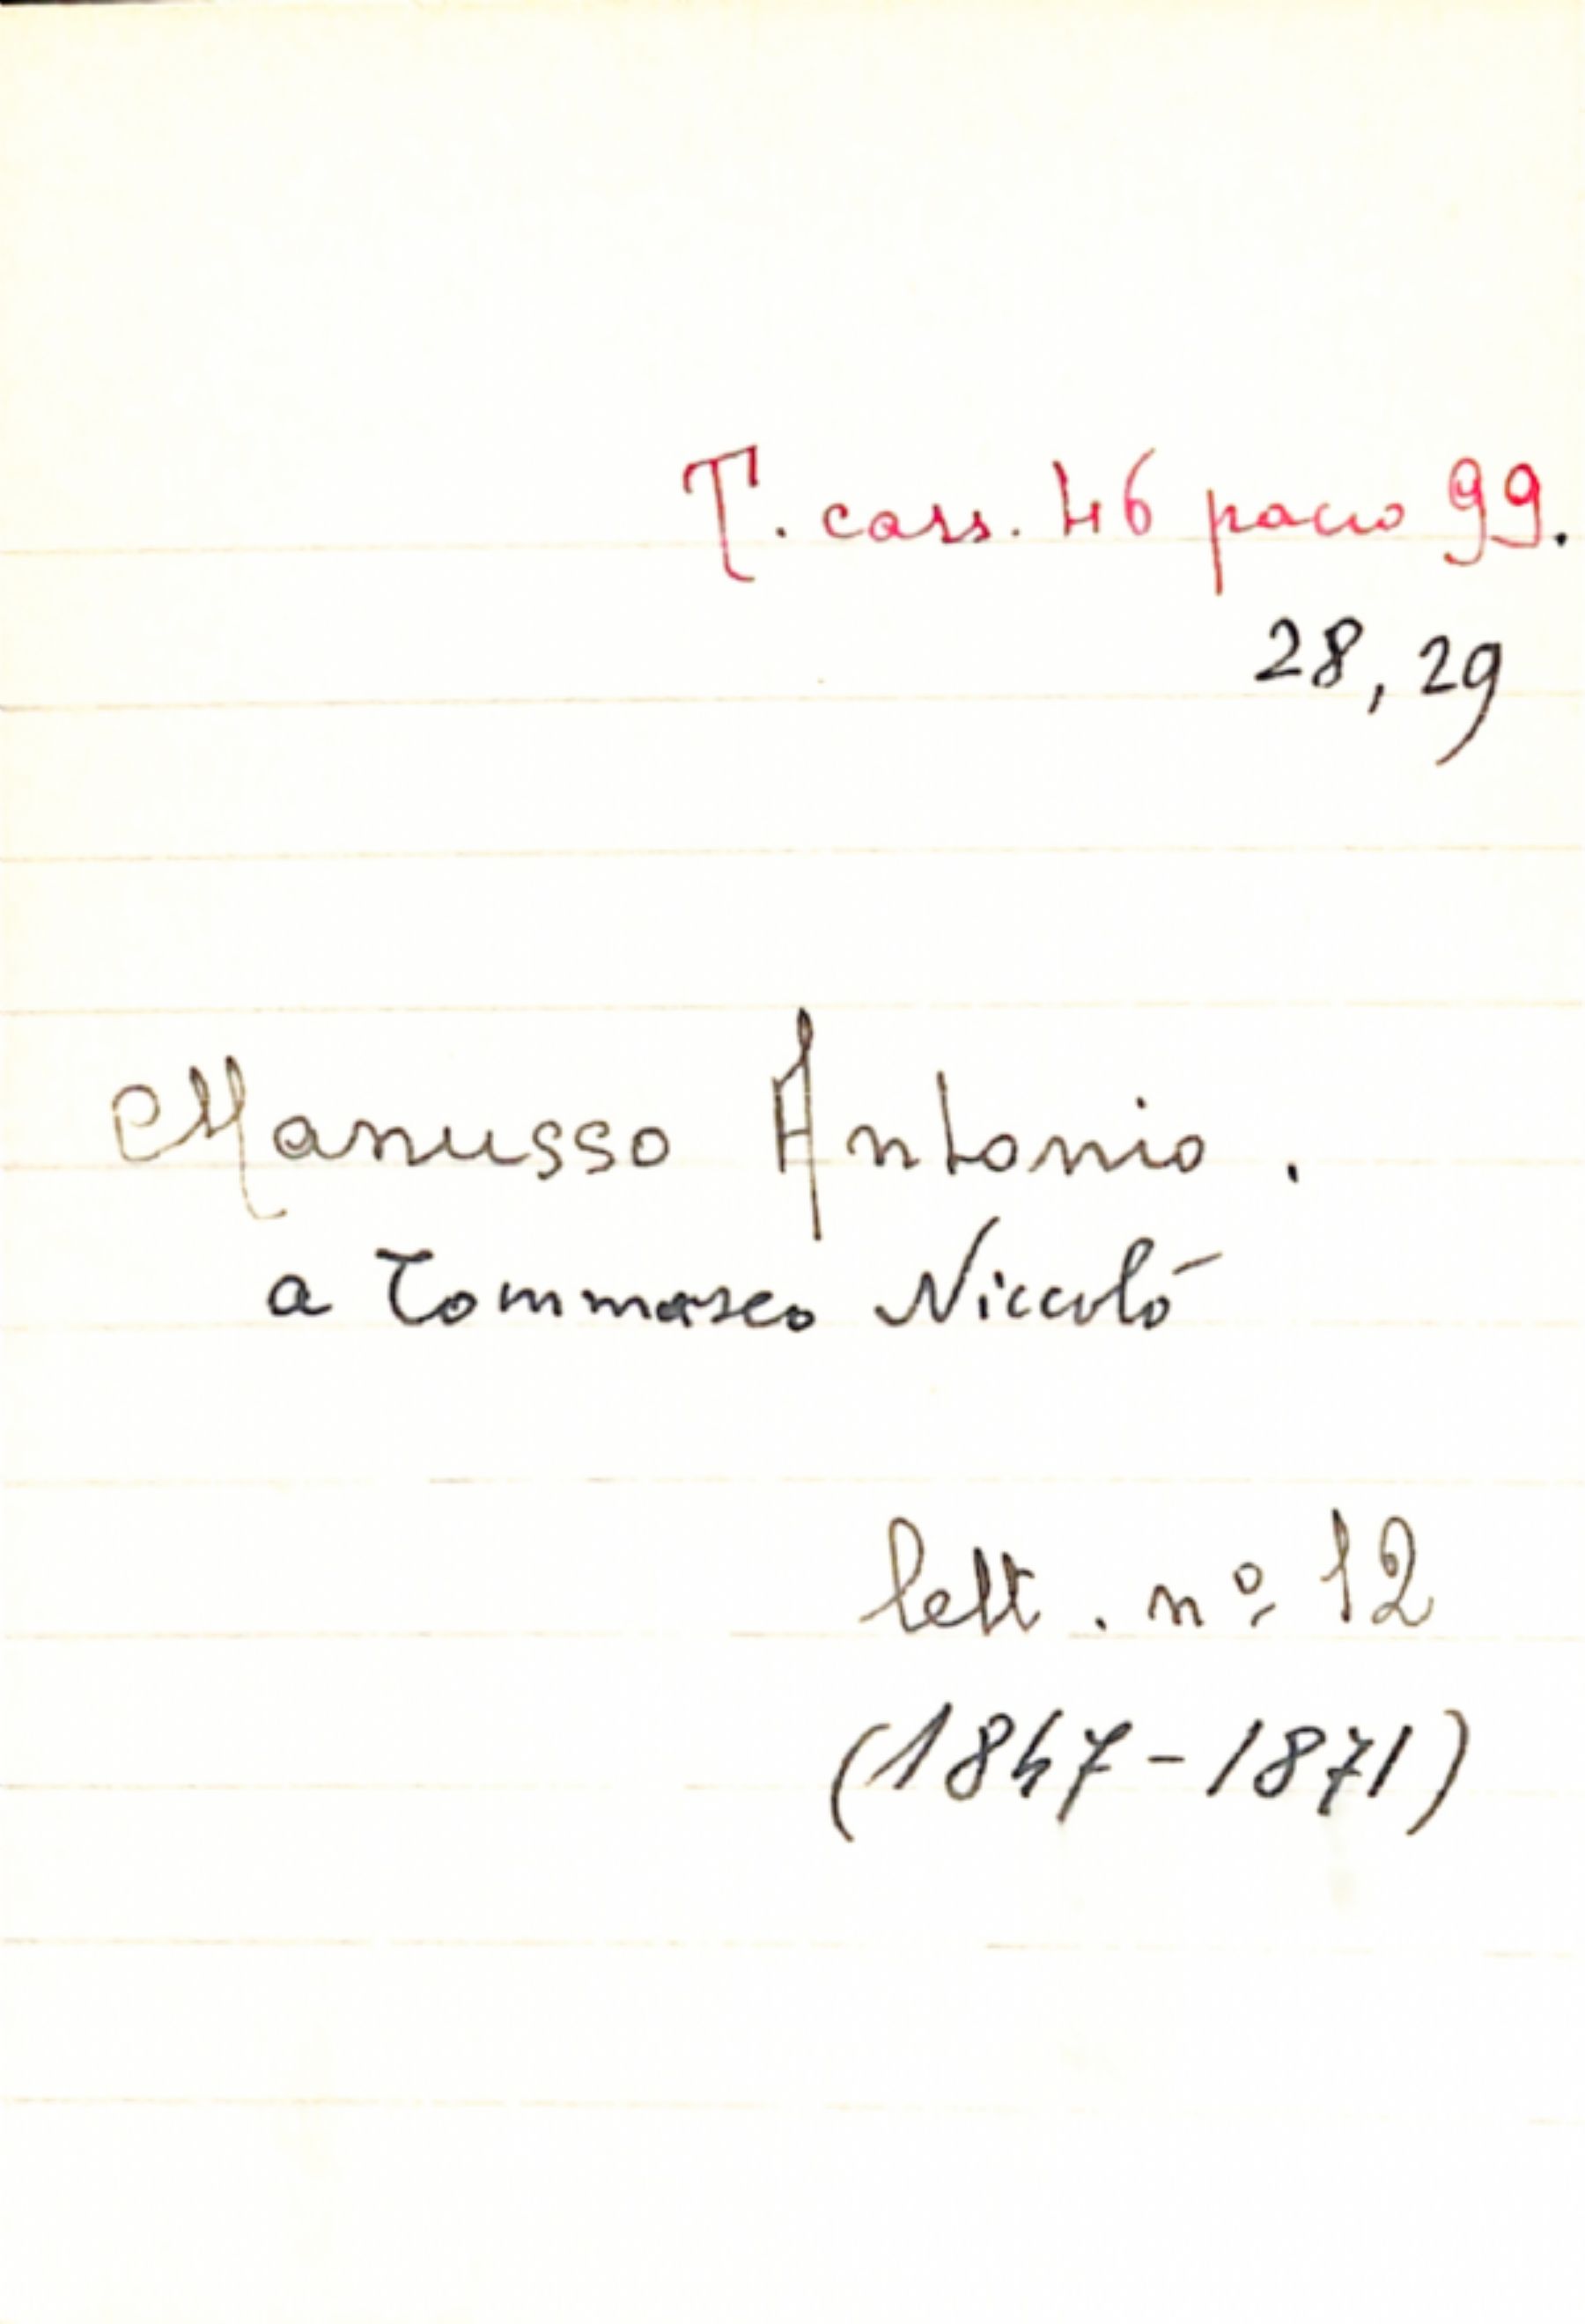 T. cass. 46 pacco 99.
28, 29
Manusso Antonio.
a Tommaseo Niccolò
lett. nº 12
(1847-1871)